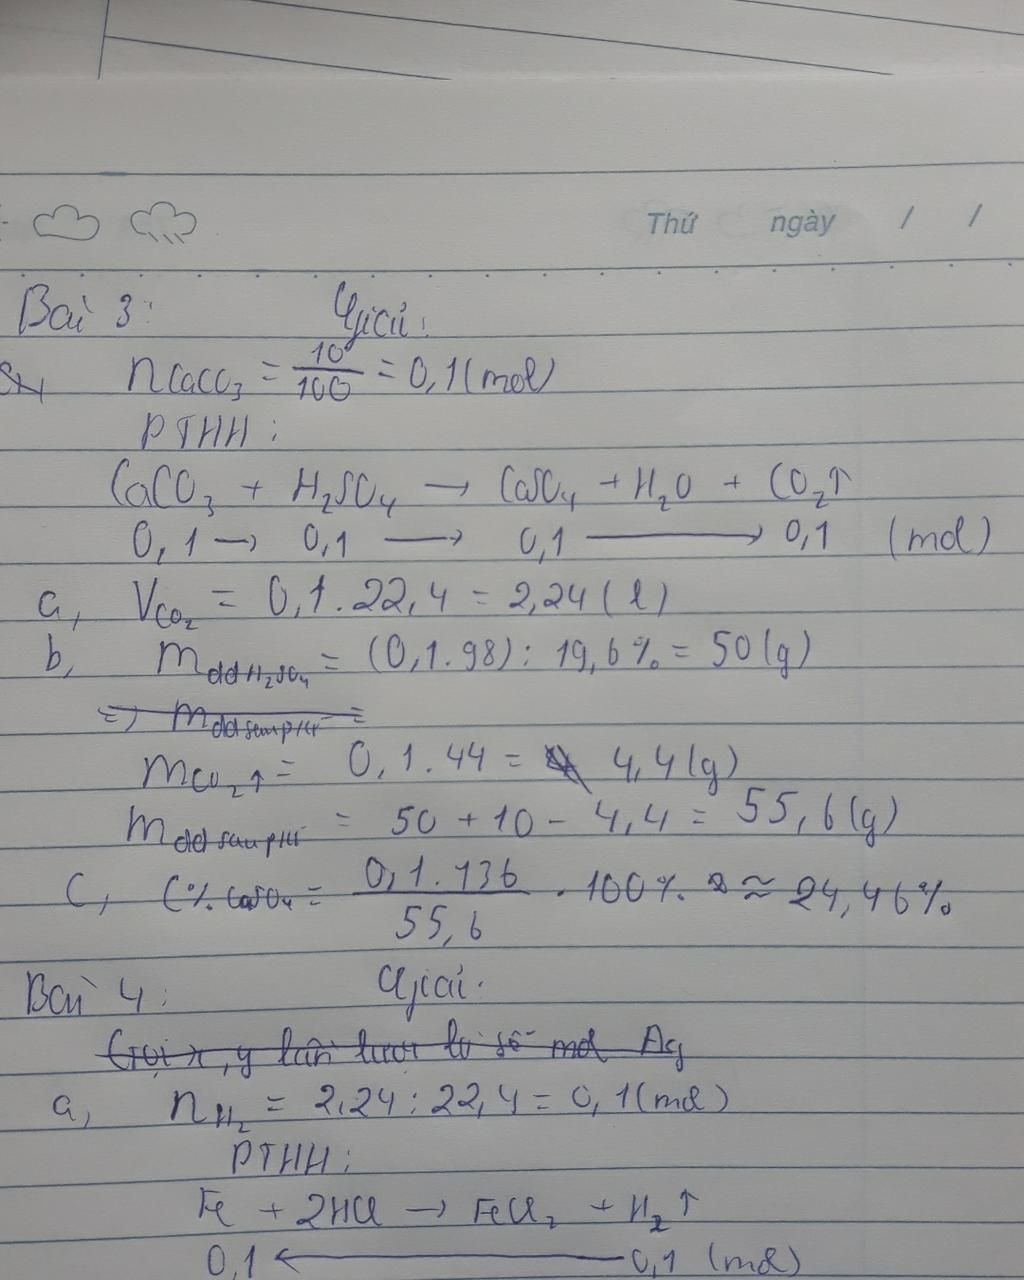 Thứ ngày / /
Bài 3: Giải:
nCaCO3 = 10/100 = 0,1 (mol)
PTHH:
CaCO3 + H2SO4 → CaSO4 + H2O + CO2↑
0,1 → 0,1 → 0,1 → 0,1 (mol)
a, VCO2 = 0,1.22,4 = 2,24 (l)
b, mddH2SO4 = (0,1.98) : 19,6% = 50 (g)
=> mddsaupHứ =
mCO2↑ = 0,1.44 = 4,4 (g)
mddsaupHứ = 50 + 10 - 4,4 = 55,6 (g)
C, C%CaSO4 = 0,1.136/55,6 . 100% ≈ 24,46%
Bài 4: Giải:
Gọi x, y lần lượt là số mol Ag
a, nH2 = 2,24 : 22,4 = 0,1 (mol)
PTHH:
Fe + 2HCl → FeCl2 + H2↑
0,1 ← 0,1 (mol)